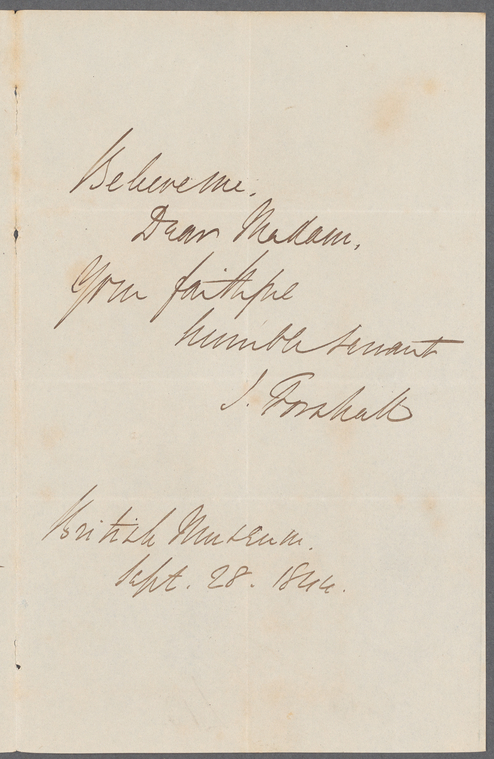 Believe me.
Dear Madam,
Your faithful
humble servant
J. Forshall
British Museum.
Sept. 28. 1844.